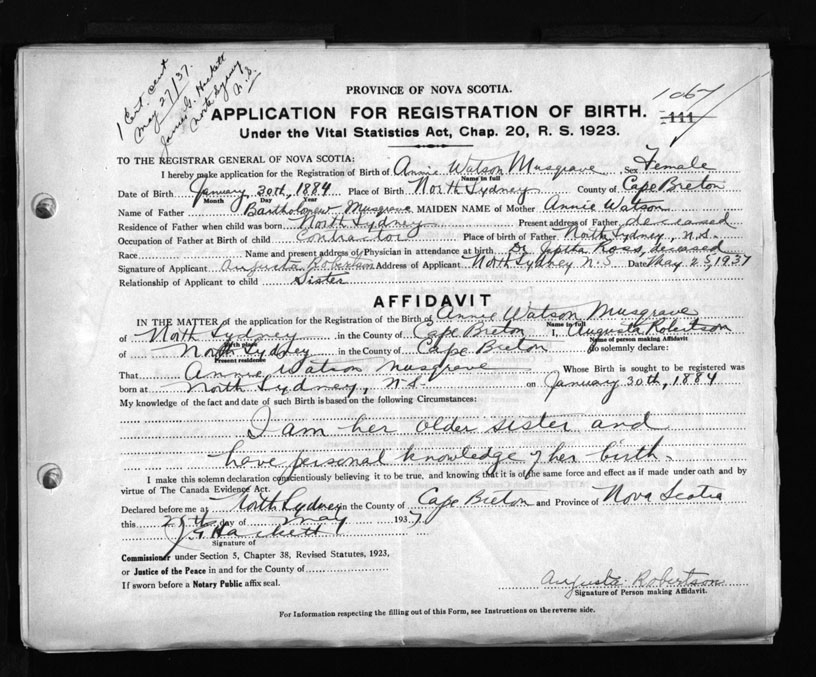 1 Cert. sent
May 27/37.
James G. Hackett
North Sydney
N.S.
PROVINCE OF NOVA SCOTIA.
1067
111
APPLICATION FOR REGISTRATION OF BIRTH.
Under the Vital Statistics Act, Chap. 20, R. S. 1923.
TO THE REGISTRAR GENERAL OF NOVA SCOTIA:
I hereby make application for the Registration of Birth of Annie Watson Musgrave Sex Female
Name in full
Date of Birth January 30th, 1884 Place of Birth North Sydney County of Cape Breton
Month Day Year
Name of Father Bartholomew Musgrave MAIDEN NAME of Mother Annie Watson
Residence of Father when child was born North Sydney Present address of Father deceased
Occupation of Father at Birth of child Contractor Place of birth of Father North Sydney, N.S.
Race Name and present address of Physician in attendance at birth Dr Ross, deceased
Signature of Applicant Augusta Robertson Address of Applicant North Sydney N.S Date May 25, 1937
Relationship of Applicant to child Sister
AFFIDAVIT
IN THE MATTER of the application for the Registration of the Birth of Annie Watson Musgrave
Name in full
of North Sydney in the County of Cape Breton I, Augusta Robertson
Birth place Name of person making Affidavit
of North Sydney in the County of Cape Breton do solemnly declare:
Present residence
That Annie Watson Musgrave Whose Birth is sought to be registered was
born at North Sydney, N.S. on January 30th, 1884
My knowledge of the fact and date of such Birth is based on the following Circumstances:
I am her older sister and
have personal knowledge of her birth.
I make this solemn declaration conscientiously believing it to be true, and knowing that it is of the same force and effect as if made under oath and by
virtue of The Canada Evidence Act.
Declared before me at North Sydney in the County of Cape Breton and Province of Nova Scotia
this day of May 1937
J. G. Hackett
Signature of
Commissioner under Section 5, Chapter 38, Revised Statutes, 1923,
or Justice of the Peace in and for the County of
If sworn before a Notary Public affix seal.
Augusta Robertson
Signature of Person making Affidavit.
For Information respecting the filling out of this Form, see Instructions on the reverse side.